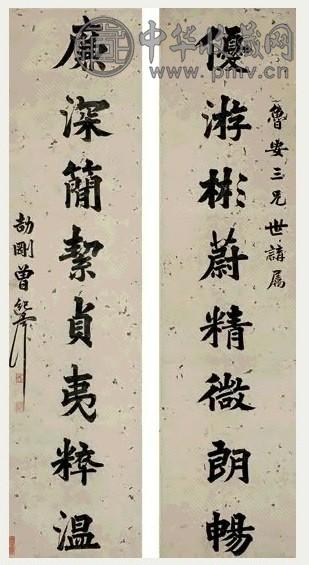 中华收藏网
www.pmv.cn
魯安三兄世講属
優游彬蔚精微朗暢
廉深簡絜貞夷粹溫
劼剛曾紀澤